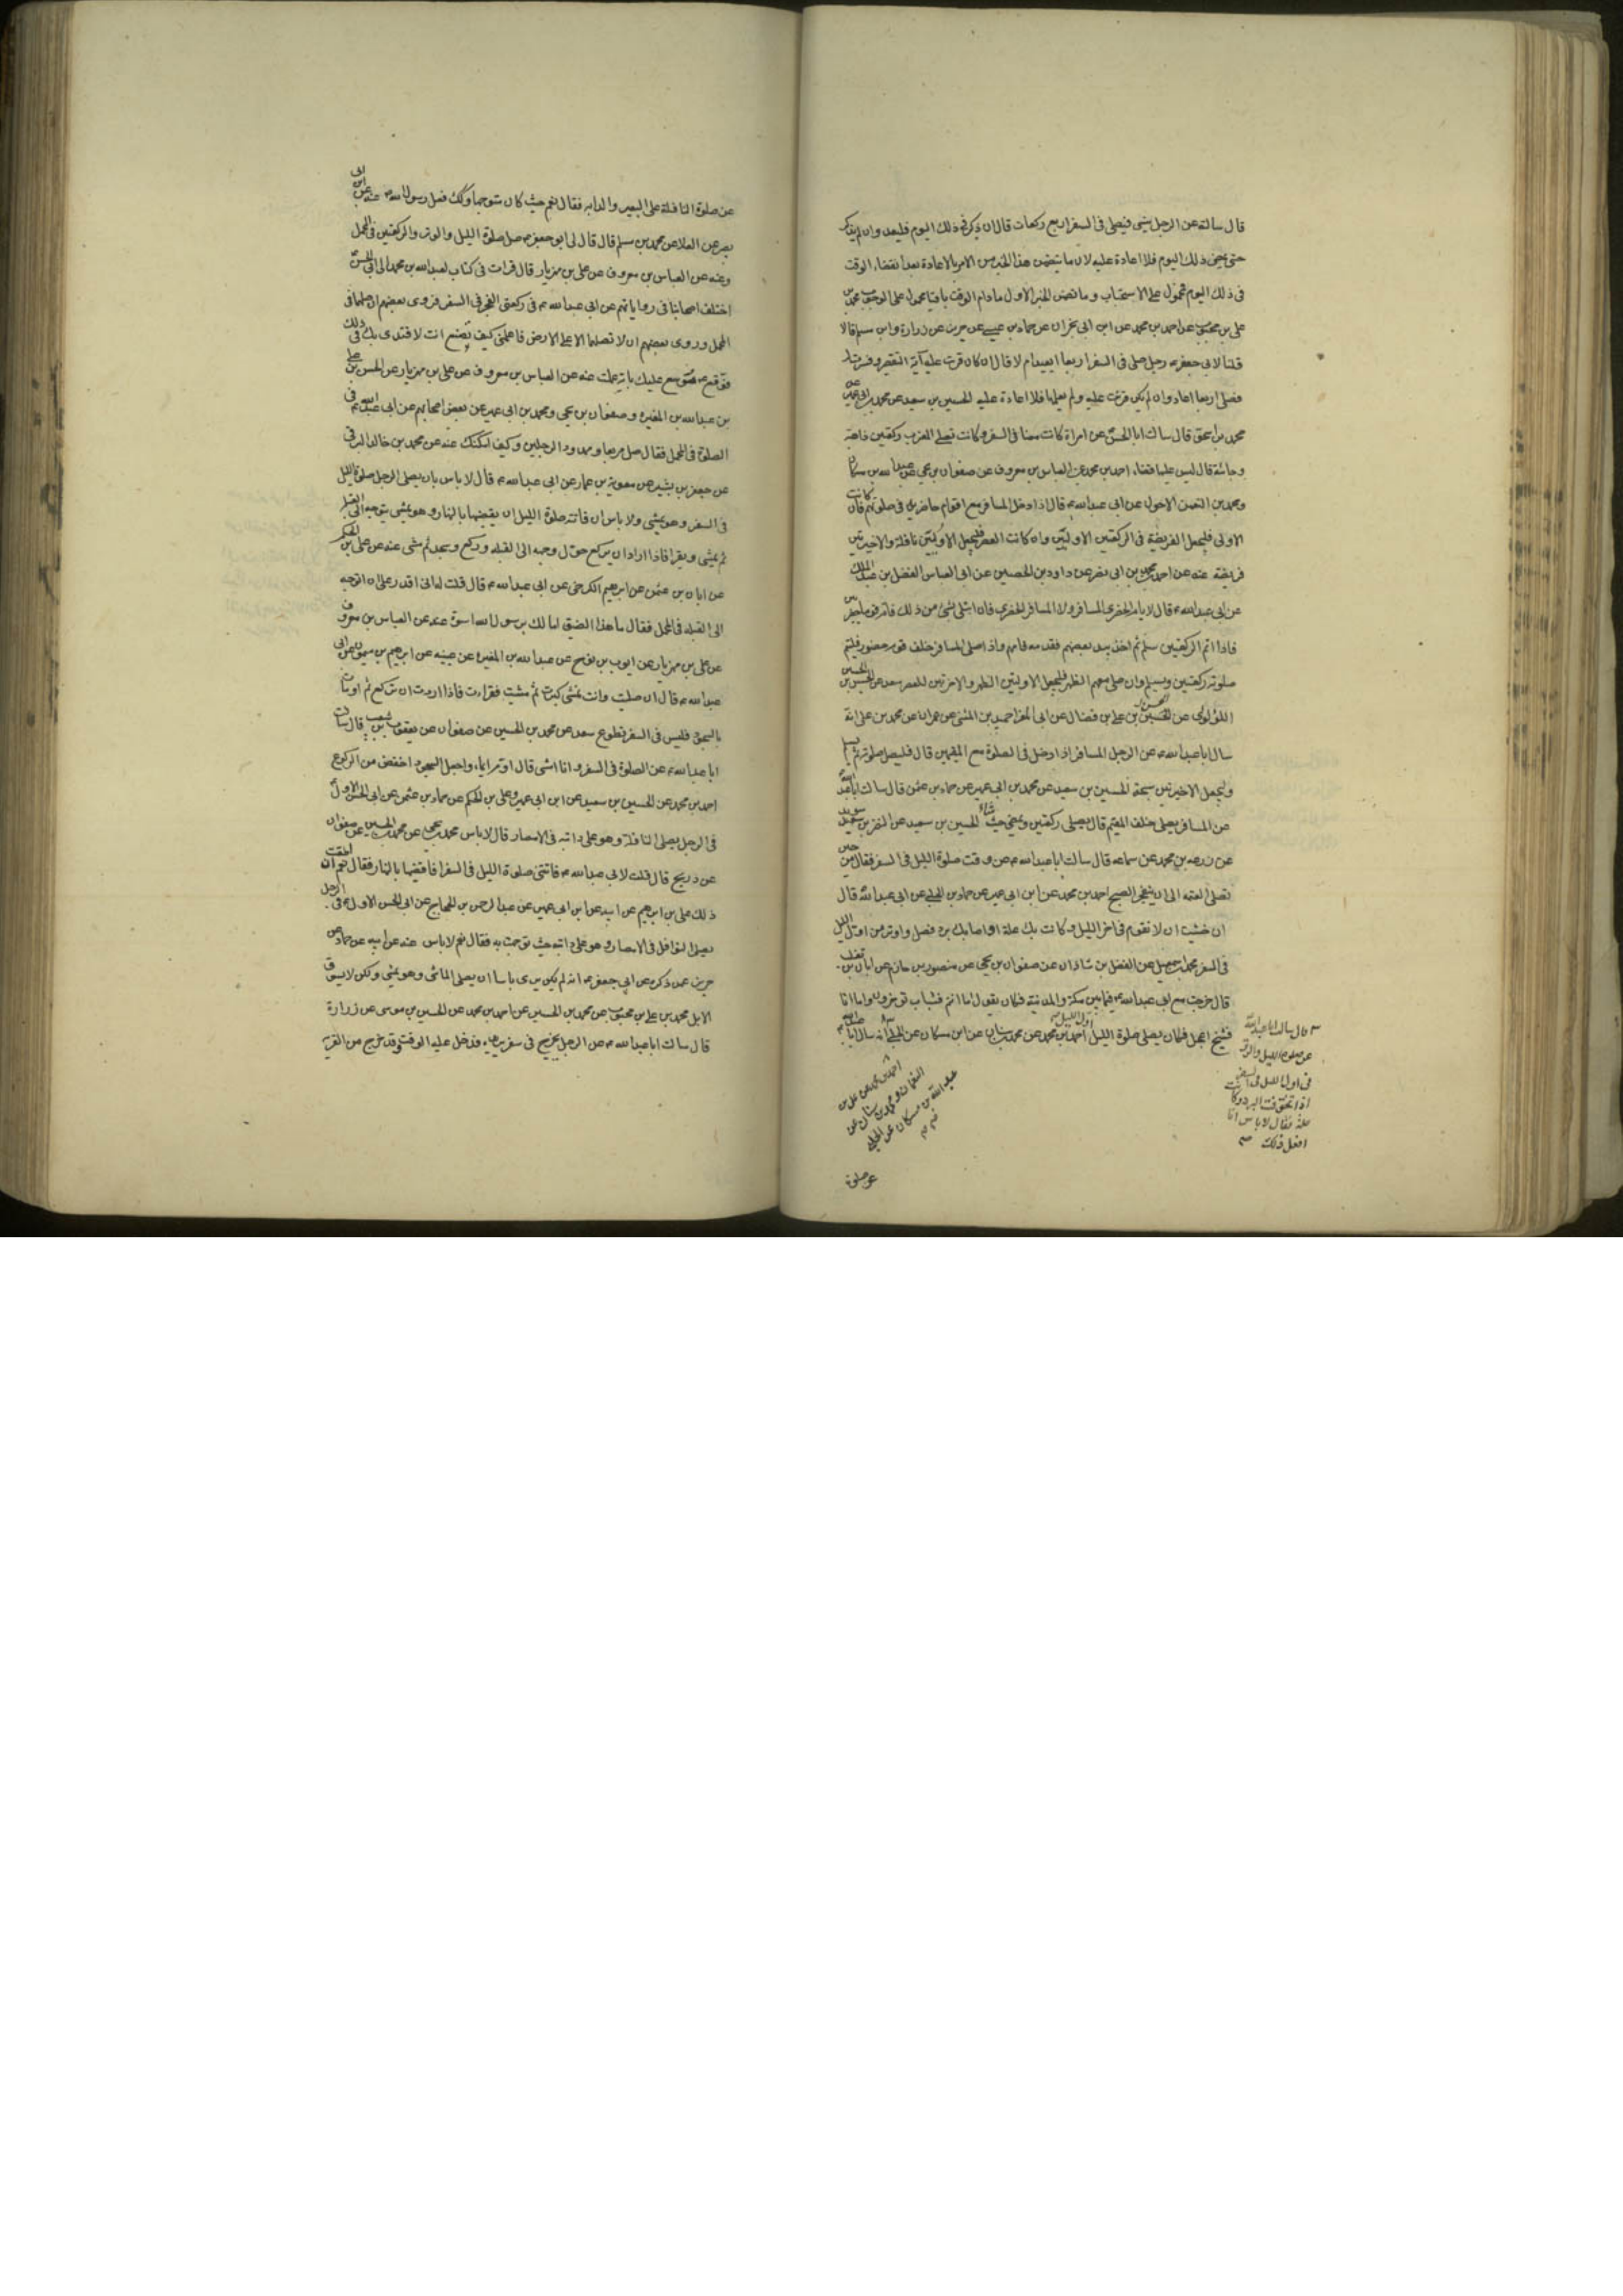 قال سالته عن الرجل ينسى فيصلى فى السفر اربع ركعات قال ان ذكر فى ذلك اليوم فليعد وان لم يذكر
حتى يمضى ذلك اليوم فلا اعادة عليه لان ما يتضمن هذا الخبر من الامر بالاعادة بعد انقضاء الوقت
فى ذلك اليوم محمول على الاستحباب وما تضمن الخبر الاول مادام الوقت باقيا محمول على الوجوب محمد بن
على بن محبوب عن احمد بن محمد عن ابن ابى نجران عن حماد بن عيسى عن حريز عن زرارة وابن مسلم قالا
قلنا لابى جعفر ع رجل صلى فى السفر اربعا ايعيد ام لا قال ان كان قرئت عليه آية التقصير وفسرت له
فصلى اربعا اعاد وان لم يكن قرئت عليه ولم يعلمها فلا اعادة عليه الحسين بن سعيد عن محمد بن ابى عمير عن
محمد بن اسحق قال سالت ابا الحسن ع عن امراة كانت معنا فى السفر وكانت تصلى المغرب ركعتين ذاهبة
وجائية قال ليس عليها قضاء احمد بن محمد عن العباس بن معروف عن صفوان بن يحيى عن عبد الله بن مسكان
ومحمد بن النعمن الاحول عن ابى عبد الله ع قال اذا دخل المسافر مع اقوام حاضرين فى صلوتهم فان كانت
الاولى فليجعل الفريضة فى الركعتين الاوليين وان كانت العصر فليجعل الاوليين نافلة والاخيرتين
فريضة عنه عن احمد بن محمد بن ابى نصر عن داود بن الحصين عن ابى العباس الفضل بن عبد الملك
عن ابى عبد الله ع قال لا يام الحضرى المسافر ولا المسافر الحضرى فان ابتلى بشئ من ذلك فام قوما حضرين
فاذا اتم الركعتين سلم ثم اخذ بيد بعضهم فقدمه فامهم واذا صلى المسافر خلف قوم حضور فليتم
صلوته ركعتين ويسلم وان صلى معهم الظهر فليجعل الاوليتين الظهر والاخرتين للعصر سعد عن الحسن بن الحسين
اللؤلؤى عن الحسن بن على بن فضال عن ابى المغرا حميد بن المثنى عن عمران عن محمد بن على انه
سال ابا عبد الله ع عن الرجل المسافر اذا دخل فى الصلوة مع المقيمين قال فليصل صلوته ثم يسلم
وليجعل الاخيرتين سبحة الحسين بن سعيد عن محمد بن ابى عمير عن حماد بن عثمن قال سالت ابا عبد الله ع
عن المسافر يصلى خلف المقيم قال يصلى ركعتين ويمضى حيث شاء الحسين بن سعيد عن النضر بن سويد
عن زرعه بن محمد عن سماعه قال سالت ابا عبد الله ع عن وقت صلوة الليل فى السفر فقال من حين
تصلى العتمه الى ان ينفجر الصبح احمد بن محمد عن ابن ابى عمير عن حماد بن الحلبى عن ابى عبد الله ع قال
ان خشيت ان لا تقوم فى اخر الليل وكانت بك علة او اصابك برد فصل واوتر من اول الليل
فى السفر محمد بن اسمعيل عن الفضل بن شاذان عن صفوان بن يحيى عن منصور بن حازم عن ابان بن تغلب
قال خرجت مع ابى عبد الله ع فيما بين مكة والمدينة فكان يقول اما انتم فشباب تؤخرون واما انا
فشيخ اعجل فكان يصلى صلوة الليل اول الليل احمد بن محمد عن محمد بن سنان عن ابن مسكان عن الحلبى انه سال ابا عبد الله ع
قال سالت ابا عبد الله
عن صلوة الليل والوتر
فى اول الليل فى السفر
اذا تخوفت البرد وكانت
علة فقال لا باس انا
افعل ذلك صح
احمد بن محمد عن على بن
النعمان ومحمد بن سنان عن
عبد الله بن مسكان عن الحلبى
عن صلوة
عن صلوة النافلة على البعير والدابه فقال نعم حيث كان متوجها وكذلك فعل رسول الله ص عنه عن ابن ابى
نصر عن العلا عن محمد بن مسلم قال قال لى ابو جعفر ع صل صلوة الليل والوتر والركعتين فى المحمل
وعنه عن العباس بن معروف عن على بن مهزيار قال قرات فى كتاب لعبد الله بن محمد الى ابى الحسن ع
اختلف اصحابنا فى رواياتهم عن ابى عبد الله ع فى ركعتى الفجر فى السفر فروى بعضهم ان صلهما فى
المحمل وروى بعضهم ان لا تصلها الا على الارض فاعلمنى كيف تصنع انت لاقتدى بك فى ذلك
فوقع ع موسع عليك باية عملت عنه عن العباس بن معروف عن على بن مهزيار عن الحسن بن على
بن عبد الله بن المغيره وصفوان بن يحيى ومحمد بن ابى عمير عن بعض اصحابهم عن ابى عبد الله ع فى
الصلوة فى المحمل فقال صل متربعا وممدود الرجلين وكيف امكنك عنه عن محمد بن خالد البرقى
عن جعفر بن بشير عن معوية بن عمار عن ابى عبد الله ع قال لا باس بان يصلى الرجل صلوة الليل
فى السفر وهو يمشى ولا باس ان فاتته صلوة الليل ان يقضيها بالنهار وهو يمشى يتوجه الى القبلة
ثم يمشى ويقرا فاذا اراد ان يركع حول وجهه الى القبله وركع وسجد ثم مشى عنه عن على بن الحكم
عن ابان بن عثمن عن ابرهيم الكرخى عن ابى عبد الله ع قال قلت له انى اقدر على ان اتوجه
الى القبله فى المحمل فقال ما هذا الضيق اما لك برسول الله اسوة عنه عن العباس بن معروف
عن على بن مهزيار عن ايوب بن نوح عن عبد الله بن المغيره عن عيينه عن ابرهيم بن ميمون عن ابى
عبد الله ع قال ان صليت وانت تمشى كبرت ثم مشيت فقراءت فاذا اردت ان تركع ثم اومات
بالسجود فليس فى السفر تطوع سعد عن محمد بن الحسين عن صفوان عن يعقوب بن شعيب قال سالت
ابا عبد الله ع عن الصلوة فى السفر وانا امشى قال اوم ايماء واجعل السجود اخفض من الركوع
احمد بن محمد عن الحسين بن سعيد عن ابن ابى عمير وعلى بن الحكم عن حماد بن عثمن عن ابى الحسن الاول ع
فى الرجل يصلى النافلة وهو على دابته فى الامصار قال لا باس محمد بن يحيى عن محمد بن الحسين عن صفوان
عن ذريح قال قلت لابى عبد الله ع فاتتنى صلوة الليل فى السفر افاقضيها بالنهار فقال نعم ان اطقت
ذلك على بن ابرهيم عن ابيه عن ابن ابى عمير عن عبد الرحمن بن الحجاج عن ابى الحسن الاول ع فى الرجل
يصلى النوافل فى الامصار وهو على دابته حيث توجهت به فقال نعم لا باس عنه عن ابيه عن حماد عن
حريز عمن ذكره عن ابى جعفر ع انه لم يكن يرى باسا ان يصلى الماشى وهو يمشى ولكن لا يسوق
الابل محمد بن على بن محبوب عن محمد بن الحسين عن احمد بن محمد عن الحسين بن موسى عن زرارة
قال سالت ابا عبد الله ع عن الرجل يخرج فى سفر يريده فدخل عليه الوقت وقد خرج من القرية